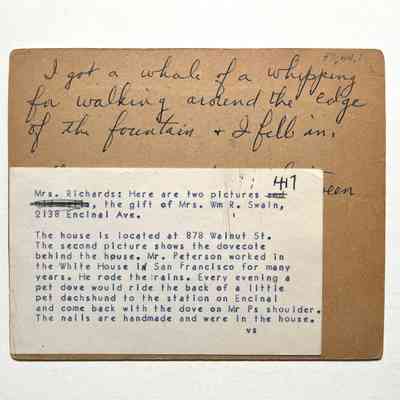 I got a whale of a whipping
for walking around the edge
of the fountain & I fell in.
417
Mrs. Richards: Here are two pictures and
, the gift of Mrs. Wm R. Swain,
2138 Encinal Ave.
The house is located at 878 Walnut St.
The second picture shows the dovecote
behind the house. Mr. Peterson worked in
the White House in San Francisco for many
years. He rode the trains. Every evening a
pet dove would ride the back of a little
pet dachshund to the station on Encinal
and come back with the dove on Mr Ps shoulder.
The nails are handmade and were in the house.
vs